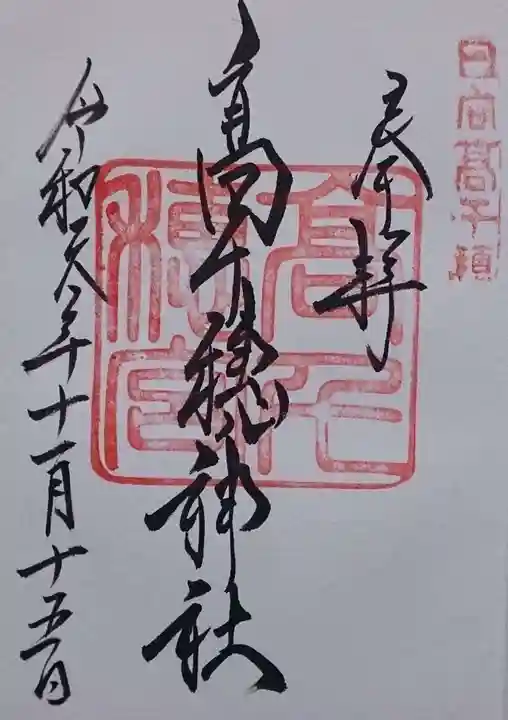 日向高千穂
奉拝
高千穂神社
令和元年十一月十五日
高千穂宮